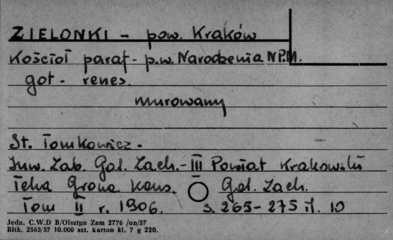 ZIELONKI - pow. Kraków
Kościół paraf - p.w. Narodzenia N.P.M.
got - renes.
murowany
St. Tomkowicz -
Inw. Zab. Gal. Zach. - III Powiat Krakowski
Teka Grona Kons. Gal. Zach.
Tom II r. 1906. s. 265-275 il. 10
Jedn. C.W.D B/Olsztyn Zam 2776 /on/57
Błtk. 2563/57 10.000 szt. karton kl. 7 g 220.